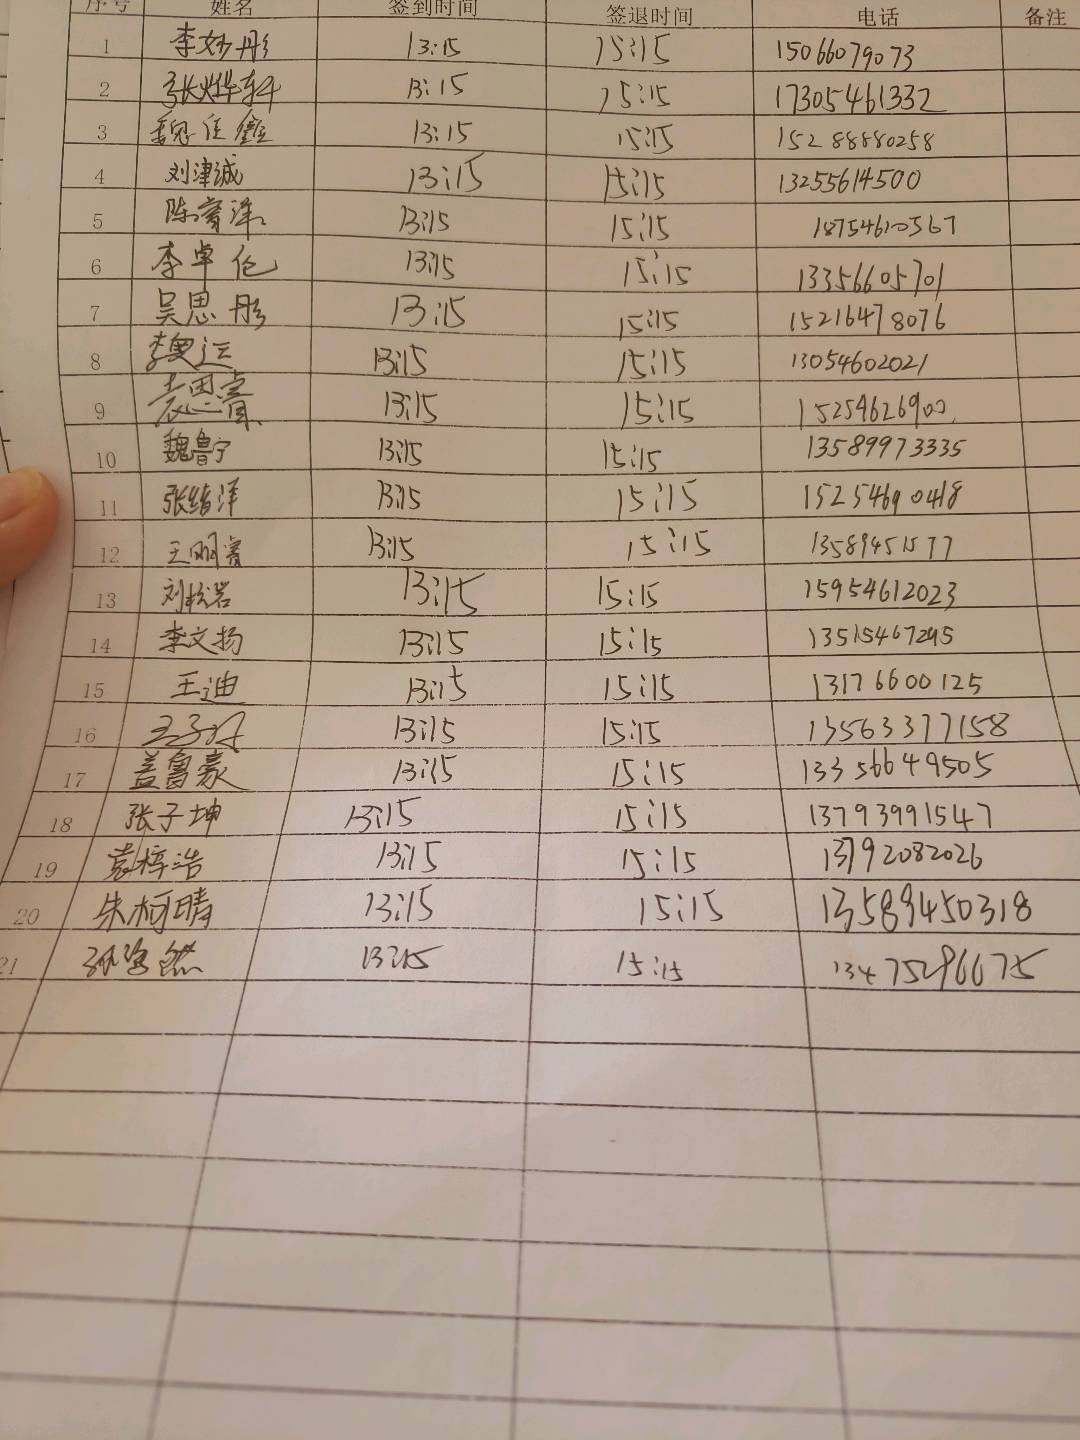 序号 姓名 签到时间 签退时间 电话 备注
1 李妙彤 13:15 15:15 15066079073
2 张烨轩 13:15 15:15 17305461332
3 魏佳鑫 13:15 15:15 15288880258
4 刘津诚 13:15 15:15 13255614500
5 13:15 15:15 18754610567
6 李卓伦 13:15 15:15 13356605701
7 吴思彤 13:15 15:15 15216478076
8 13:15 15:15 13054602021
9 袁思睿 13:15 15:15 15254626900
10 魏鲁宁 13:15 15:15 13589973335
11 张绪洋 13:15 15:15 15254690418
12 王明睿 13:15 15:15 13589451577
13 刘松岩 13:15 15:15 15954612023
14 李文扬 13:15 15:15 13515467295
15 王迪 13:15 15:15 13176600125
16 13:15 15:15 13563377158
17 盖鲁豪 13:15 15:15 13356649505
18 张子坤 13:15 15:15 13793991547
19 袁梓浩 13:15 15:15 13792082026
20 朱柯晴 13:15 15:15 13589450318
21 13:15 15:15